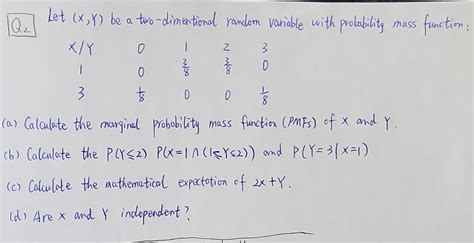 Q2. Let (X,Y) be a two-dimentional random variable with probability mass function:
X/Y 0 1 2 3
1 0 3/8 3/8 0
3 1/8 0 0 1/8
(a) Calculate the marginal probability mass function (PMFs) of X and Y.
(b) Calculate the P(Y≤2) P(X=1∩(1≤Y≤2)) and P(Y=3|X=1)
(c) Calculate the mathematical expectation of 2X+Y.
(d) Are X and Y independent?